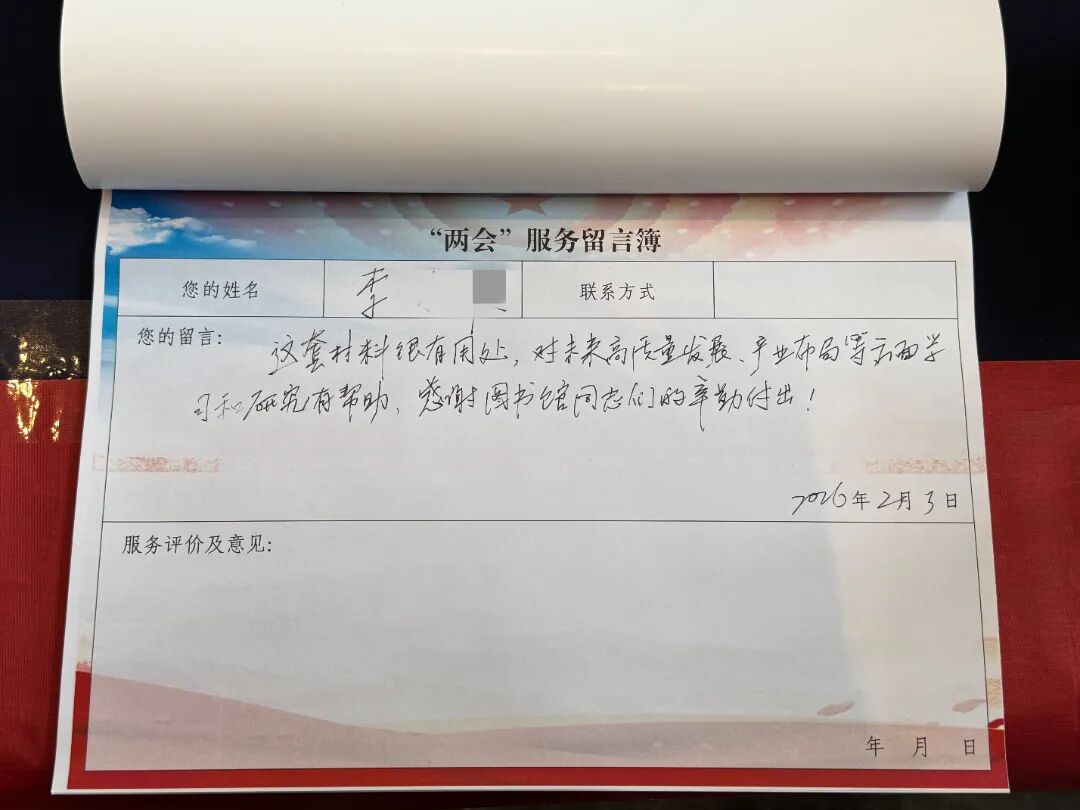 “两会”服务留言簿
您的姓名 李 联系方式
您的留言:
这套材料很有用处，对未来高质量发展、产业布局等方面学
习和研究有帮助，感谢图书馆同志们的辛勤付出！
2026年2月3日
服务评价及意见:
年 月 日